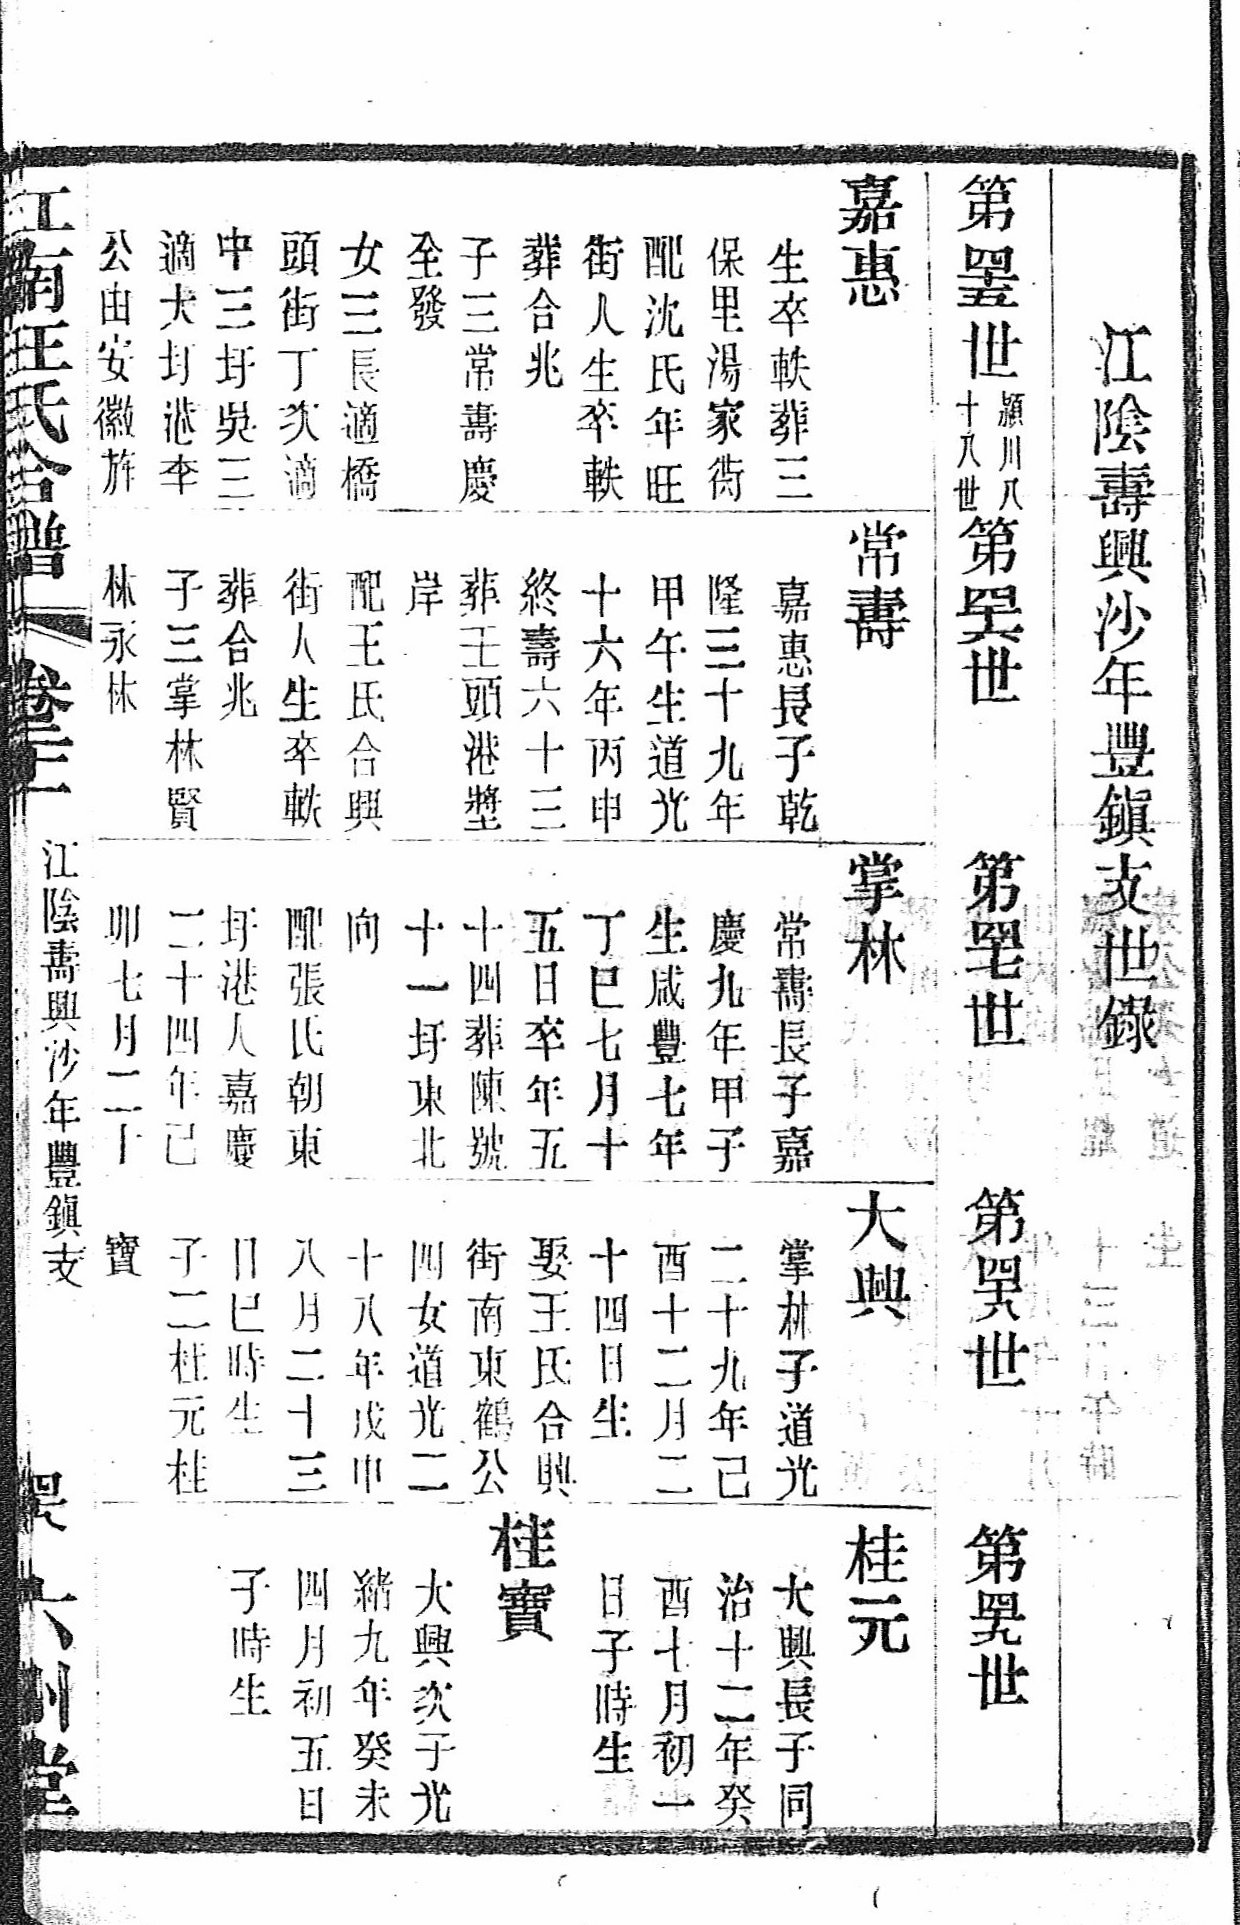 江陰壽興沙年豐鎮支世錄
第罣世
潁川八
十八世
第罤世
第罞世
第罖世
第罤世
嘉惠
生卒軼葬三
保里湯家衖
配沈氏年旺
街人生卒軼
葬合兆
子三常壽慶
全發
女三長適橋
頭街丁次適
中三圩吳三
適大圩港李
公由安徽旌
常壽
嘉惠長子乾
隆三十九年
甲午生道光
十六年丙申
終壽六十三
葬王頭港壟
岸
配王氏合興
街人生卒軼
葬合兆
子三掌林賢
林永林
掌林
常壽長子嘉
慶九年甲子
生咸豐七年
丁巳七月十
五日卒年五
十四葬陳號
十一圩東北
向
配張氏朝東
圩港人嘉慶
二十四年己
卯七月二十
大興
掌林子道光
二十九年己
酉十二月二
十四日生
娶王氏合興
街南東鶴公
四女道光二
十八年戊申
八月二十三
日巳時生
子二桂元桂
寶
桂元
大興長子同
治十二年癸
酉七月初一
日子時生
桂寶
大興次子光
緒九年癸未
四月初五日
子時生
江南汪氏合譜
江陰壽興沙年豐鎮支
六州堂